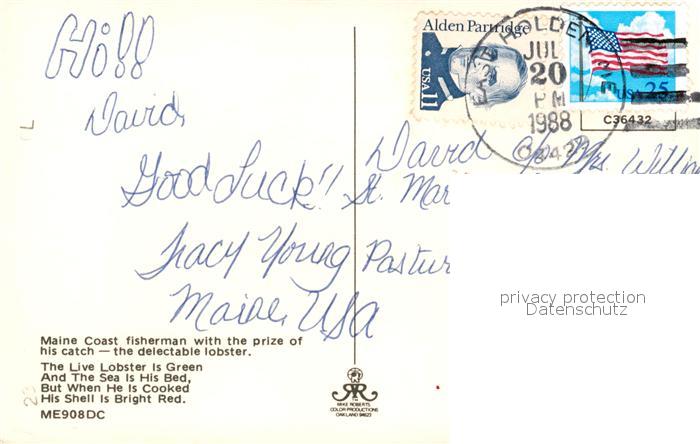 Hi!!
David,
Good Luck!!
Tracy Young
Maine, USA
Alden Partridge
USA 11
USA 25
EAST HOLDEN ME
JUL
20
PM
1988
C36432
David c/o Mrs.
St. Mar
Pastur
privacy protection
Datenschutz
Maine Coast fisherman with the prize of
his catch — the delectable lobster.
The Live Lobster Is Green
And The Sea Is His Bed,
But When He Is Cooked
His Shell Is Bright Red.
ME908DC
MIKE ROBERTS
COLOR PRODUCTIONS
OAKLAND 94623